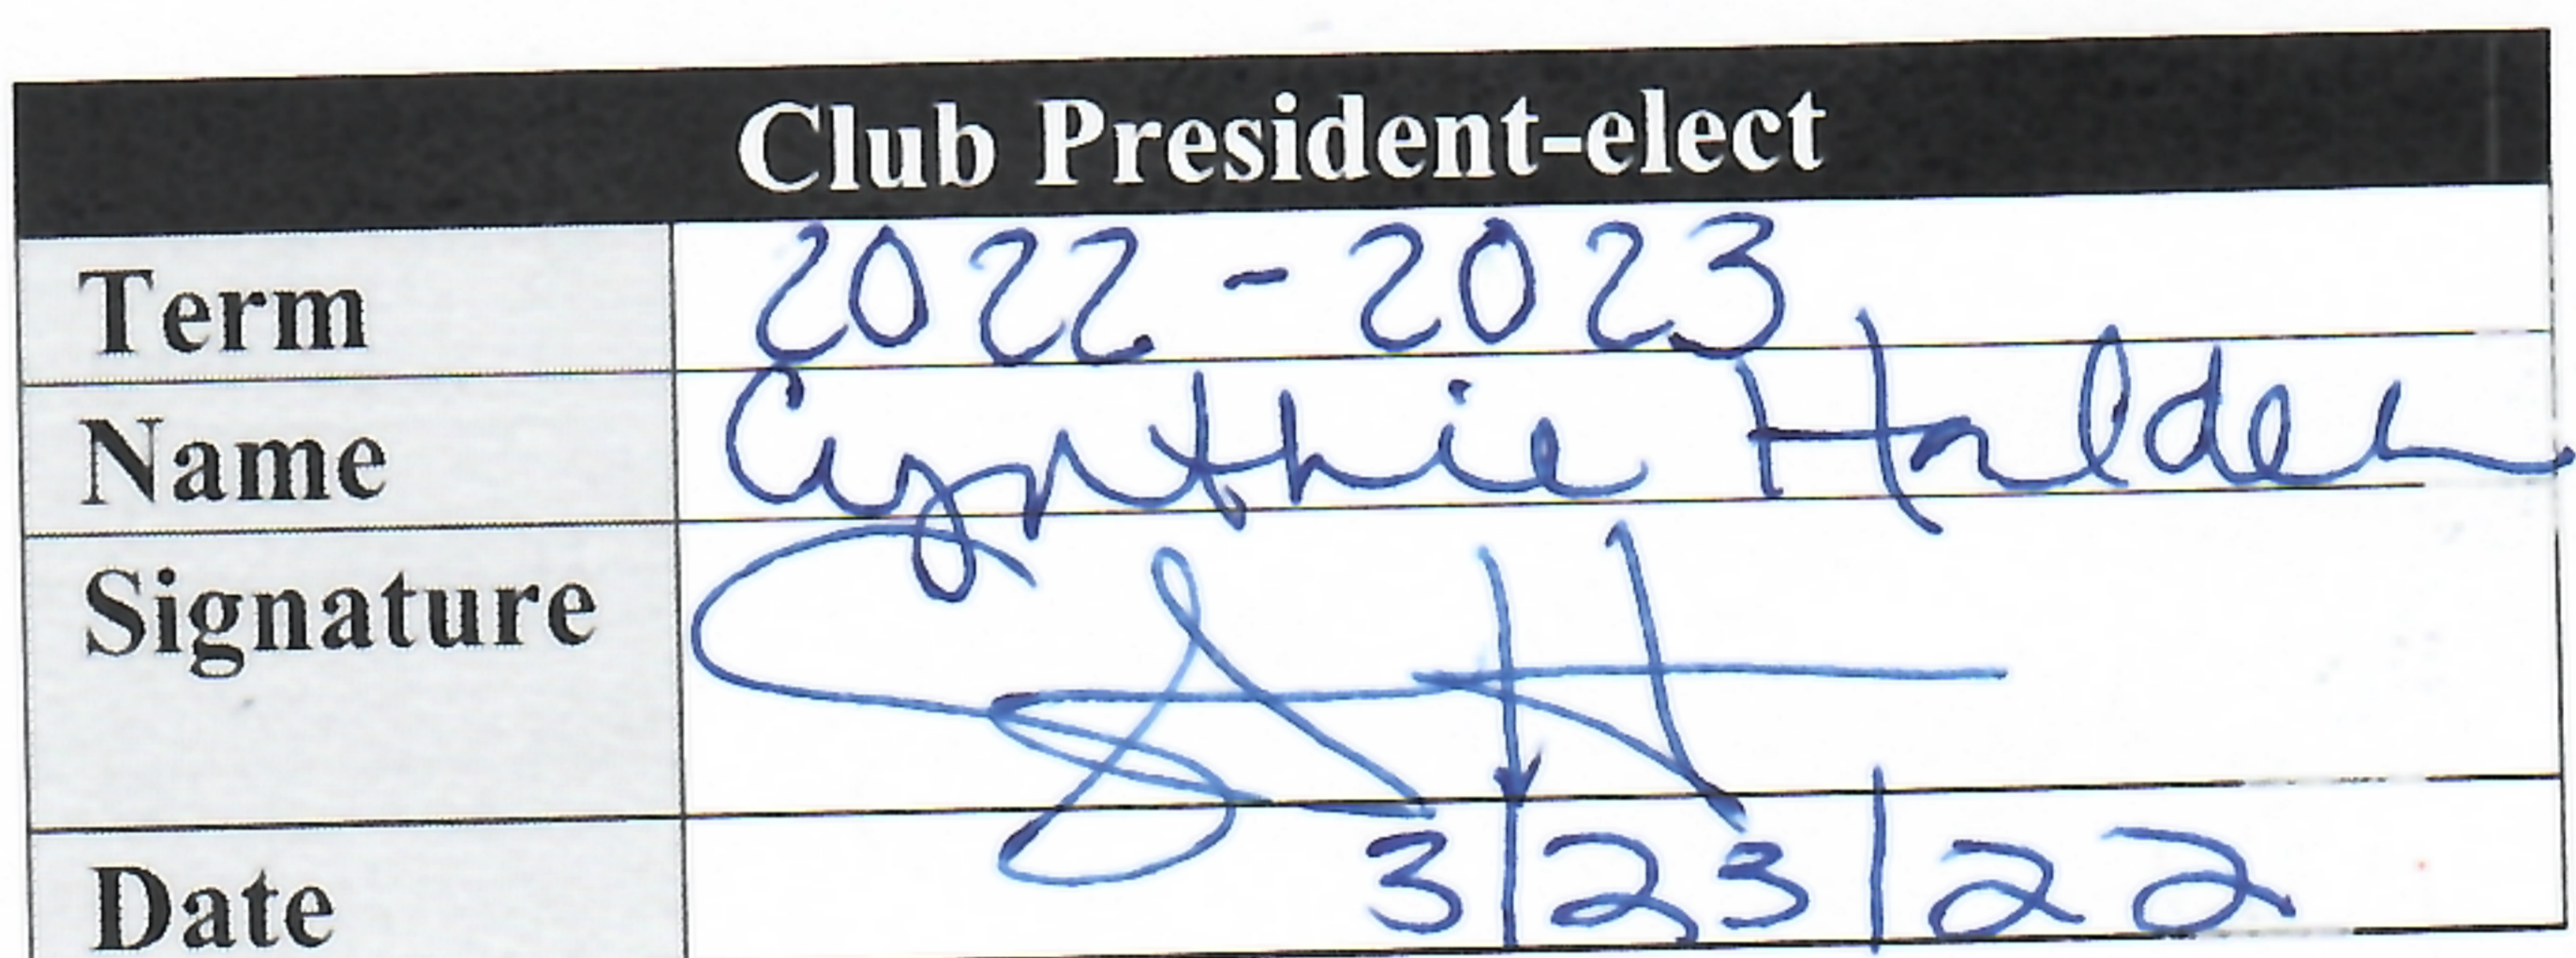 Club President-elect
Term 2022 - 2023
Name Cynthie Holden
Signature
Date 3/23/22